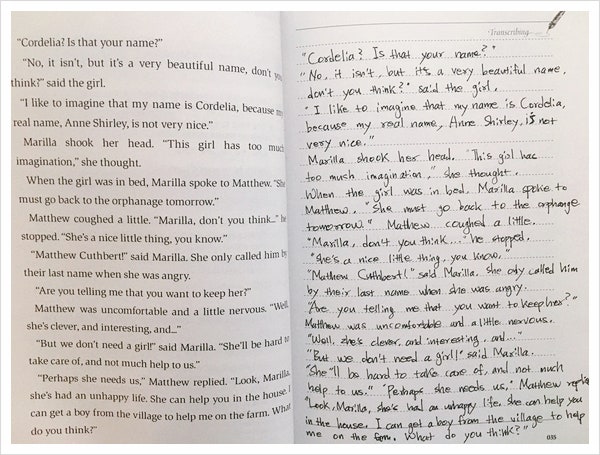 “Cordelia? Is that your name?”
“No, it isn’t, but it’s a very beautiful name, don’t you
think?” said the girl.
“I like to imagine that my name is Cordelia, because my
real name, Anne Shirley, is not very nice.”
Marilla shook her head. “This girl has too much
imagination,” she thought.
When the girl was in bed, Marilla spoke to Matthew. “She
must go back to the orphanage tomorrow.”
Matthew coughed a little. “Marilla, don’t you think...” he
stopped. “She’s a nice little thing, you know.”
“Matthew Cuthbert!” said Marilla. She only called him by
their last name when she was angry.
“Are you telling me that you want to keep her?”
Matthew was uncomfortable and a little nervous. “Well,
she’s clever, and interesting, and...”
“But we don’t need a girl!” said Marilla. “She’ll be hard to
take care of, and not much help to us.”
“Perhaps she needs us,” Matthew replied. “Look, Marilla,
she’s had an unhappy life. She can help you in the house. I
can get a boy from the village to help me on the farm. What
do you think?”
Transcribing
“Cordelia? Is that your name?”
“No, it isn't, but it's a very beautiful name,
don't you think?” said the girl.
“I like to imagine that my name is Cordelia,
because my real name, Anne Shirley, is not
very nice.”
Marilla shook her head. “This girl has
too much imagination,” she thought.
When the girl was in bed, Marilla spoke to
Matthew. “She must go back to the orphange
tomorrow.” Matthew coughed a little.
“Marilla, don't you think...” he stopped.
“She's a nice little thing, you know.”
“Matthew Cuthbert!” said Marilla. She only called him
by their last name when she was angry.
“Are you telling me that you want to keep her?”
Matthew was uncomfortable and a little nervous.
“Well, she's clever, and interesting, and...”
“But we don't need a girl!” said Marilla.
“She'll be hard to take care of, and not much
help to us.” “Perhaps she needs us,” Matthew replie
“Look, Marilla, she's had an unhappy life, she can help you
in the house. I can get a boy from the village to help
me on the farm. What do you think?”
035